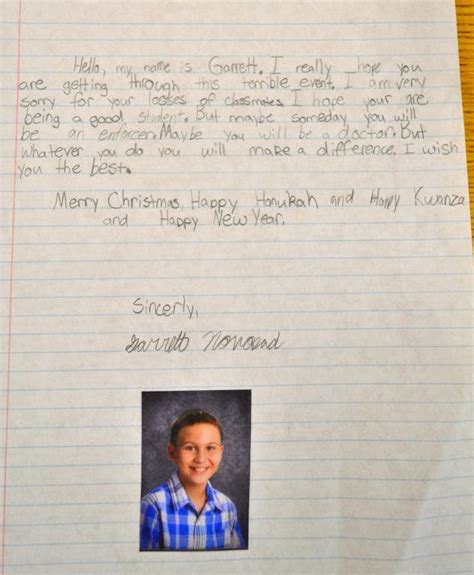 Hello, my name is Garrett. I really hope you
are getting through this terrible event. I am very
sorry for your losses of classmates. I hope your are
being a good student. But maybe someday you will
be an enforcer. Maybe you will be a doctor. But
whatever you do you will make a difference. I wish
you the best.
Merry Christmas, Happy Hanukah and Happy Kwanza
and Happy New Year.
Sincerly,
Garrett